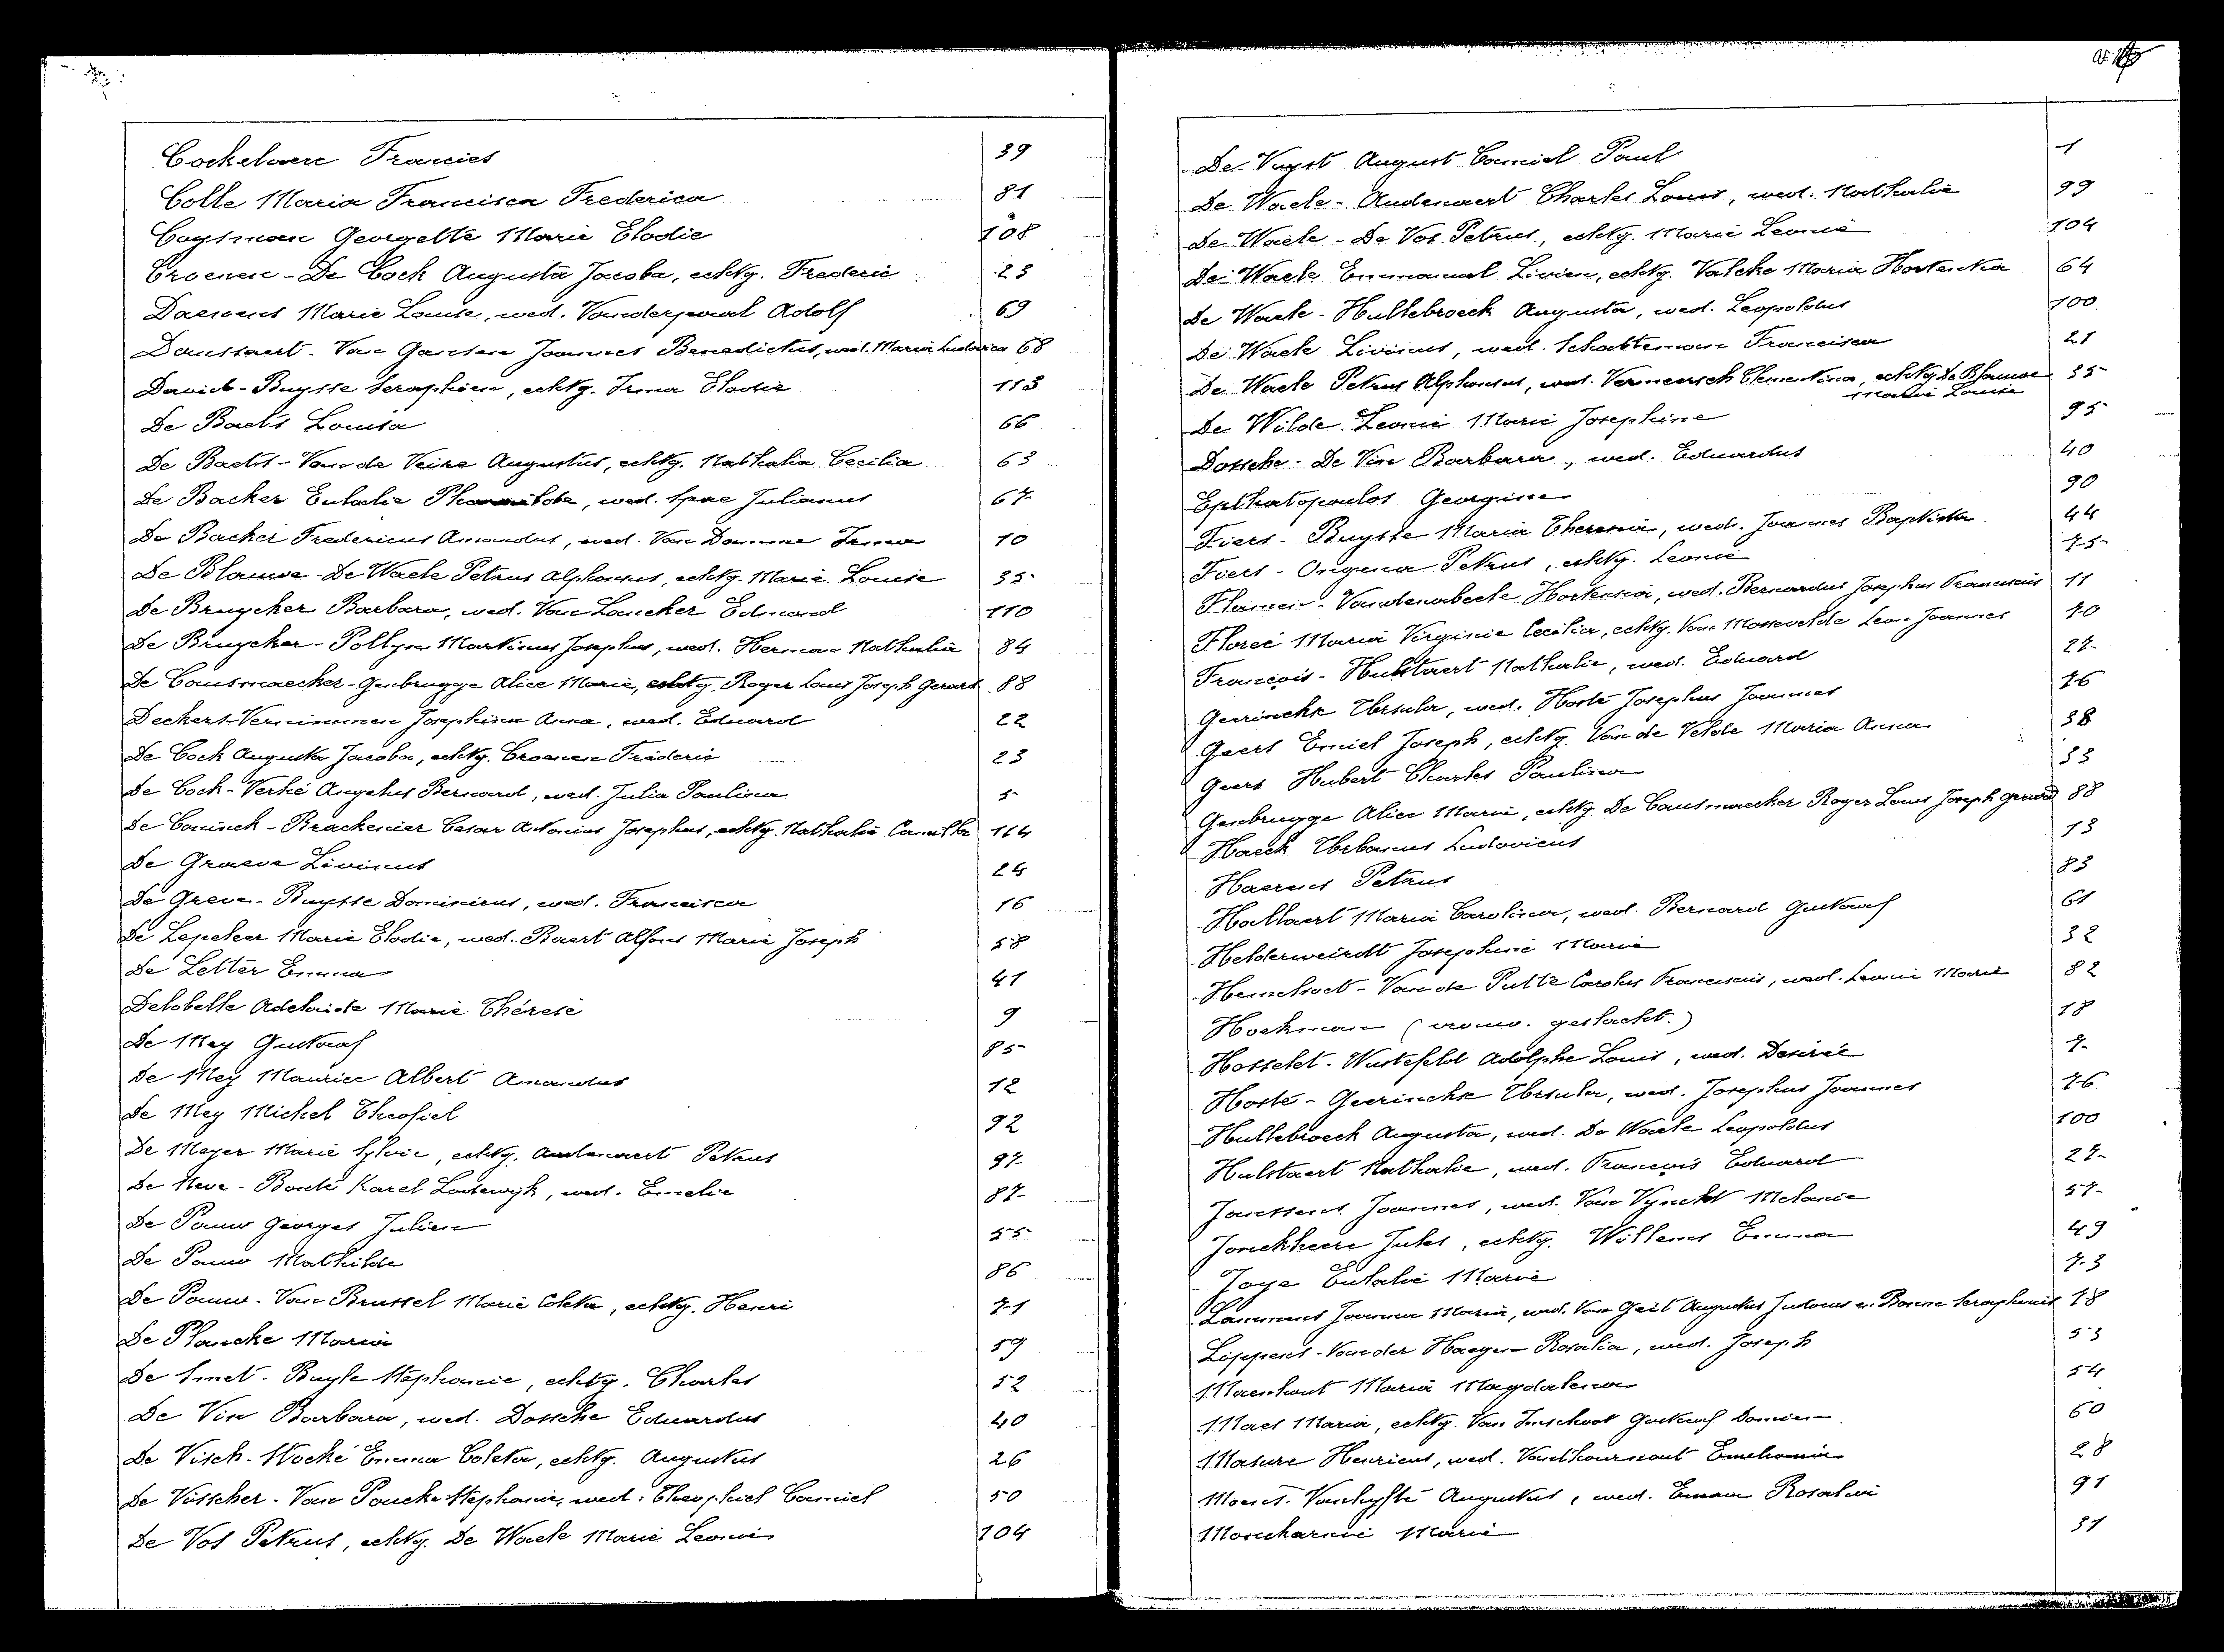 Cockelaere Francies 39
Colle Maria Francisca Frederica 81
Coysman Georgette Marie Elodie 108
Croenen - De Cock Augusta Jacoba, echtg. Frederic 23
Daenens Marie Louise, wed. Vanderpoorl Adolf 69
Danssaert - Van Gansen Joannes Benedictus, wed. Maria Ludovica 68
David - Buysse Seraphien, echtg. Irma Elodie 113
De Baets Louisa 66
De Baets - Van de Veire Augustus, echtg. Nathalia Cecilia 63
De Backer Eulalie wed. Spae Julianus 67
De Backer Fredericus Amandus, wed. Van Damme Irma 10
De Blauwe - De Waele Petrus Alphonsus, echtg. Marie Louise 35
De Bruycker Barbara, wed. Van Lancker Edmond 110
De Bruycker - Pollyn Martinus Josephus, wed. Herman Nathalie 84
De Causmaecker - Genbrugge Alice Marie, echtg. Roger Louis Joseph Gerard 88
Deckers - Vernimmen Josephina Anna, wed. Eduard 22
De Cock Augusta Jacoba, echtg. Croenen Fréderic 23
De Cock - Verhé Angelus Bernard, wed. Julia Paulina 5
De Coninck - Brackenier Cesar Antonius Josephus, echtg. Nathalie Camilla 114
De Graeve Livinus 24
De Greve - Buysse Dominicus, wed. Francisca 16
De Lepeleer Marie Elodie, wed. Baert Alfons Marie Joseph 58
De Letter Emma 41
Delobelle Adelaide Marie Thérèse 9
De Mey Gustaaf 85
De Mey Maurice Albert Amandus 12
De Mey Michel Theofiel 92
De Meyer Marie Sylvie, echtg. Audenaert Petrus 97
De Neve - Bondé Karel Lodewijk, wed. Emelie 87
De Pauw Georges Julien 55
De Pauw Mathilde 86
De Pauw - Van Brussel Marie Coleta, echtg. Henri 71
De Plancke Maria 59
De Smet - Buyle Stéphanie, echtg. Charles 52
De Vin Barbara, wed. Dossche Eduardus 40
De Visch - Hocké Emma Coleta, echtg. Augustus 26
De Visscher - Van Poucke Stéphanie, wed. Theophiel Camiel 50
De Vos Petrus, echtg. De Waele Marie Leonie 104
De Vuyst August Camiel Paul 1
De Waele - Audenaert Charles Louis, wed. Nathalie 99
De Waele - De Vos Petrus, echtg. Marie Leonie 104
De Waele Emmanuel Livien, echtg. Valcke Maria Hortentia 64
De Waele - Hullebroeck Augusta, wed. Leopoldus 100
De Waele Livinus, wed. Schatteman Francisca 21
De Waele Petrus Alphonsus, wed. Vermeersch Clementina, echtg. De Blauwe 35
Marie Louise
De Wilde Leonie Marie Josephine 95
Dossche - De Vin Barbara, wed. Eduardus 40
Epthatopoulos Georgine 90
Fiers - Buysse Maria Theresia, wed. Joannes Baptista 44
Fiers - Ongena Petrus, echtg. Leonie 75
Flamen - Vandenabeele Hortensia, wed. Bernardus Josephus Franciscus 11
Floreé Maria Virginie Cecilia, echtg. Van Mossevelde Leon Joannes 70
François - Hulstaert Nathalie, wed. Eduard 27
Geerinckx Ursula, wed. Hosté Josephus Joannes 76
Geers Emiel Joseph, echtg. Van de Velde Maria Anna 38
Geers Hubert Charles Paulina 33
Genbrugge Alice Marie, echtg. De Causmaecker Roger Louis Joseph Gerard 88
Haeck Urbanus Ludovicus 13
Haerens Petrus 83
Hallaert Maria Carolina, wed. Bernard Gustaaf 61
Helderweirdt Josephine Marie 32
Hemelsoet - Van de Putte Carolus Franciscus, wed. Leonie Marie 82
Hoekman (vrouw. geslacht.) 18
Hosselet - Wustefeld Adolphe Louis, wed. Desirée 7
Hosté - Geerinckx Ursula, wed. Josephus Joannes 76
Hullebroeck Augusta, wed. De Waele Leopoldus 100
Hulstaert Nathalie, wed. François Eduard 27
Janssens Joannes, wed. Van Vynckt Melanie 57
Jonckheere Jules, echtg. Willems Emma 49
Joye Eulalie Marie 73
Lammens Joanna Maria, wed. Van Geit Augustus Judocus en Bonne Seraphinus 78
Lippens - Van der Haegen Rosalia, wed. Joseph 53
Maenhout Maria Magdalena 54
Maes Maria, echtg. Van Imschoot Gustaaf Damien 60
Masure Henricus, wed. Vandhournout 28
Moens - Vanhyfte Augustus, wed. Emma Rosalie 91
Moncharnie Marie 31